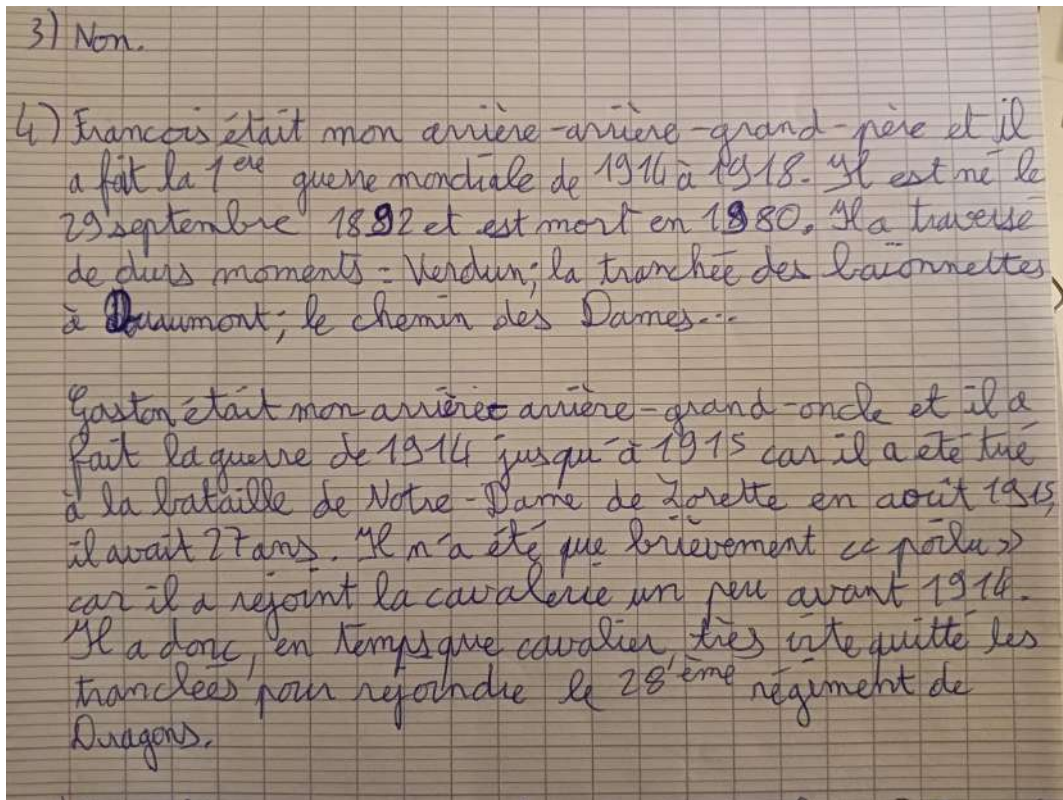 3) Non.
4) Francois était mon arrière-arrière-grand-père et il
a fait la 1ere guerre mondiale de 1914 à 1918. Il est né le
29 septembre 1892 et est mort en 1980. Il a traversé
de durs moments : Verdun; la tranchée des baïonnettes
à Douaumont; le chemin des Dames...
Gaston était mon arrière arrière-grand-oncle et il a
fait la guerre de 1914 jusqu'à 1915 car il a été tué
à la bataille de Notre-Dame de Lorette en août 1915,
il avait 27 ans. Il n'a été que brièvement « poilu »
car il a rejoint la cavalerie un peu avant 1914.
Il a donc, en temps que cavalier, très vite quitté les
tranchées pour rejoindre le 28ème régiment de
Dragons.